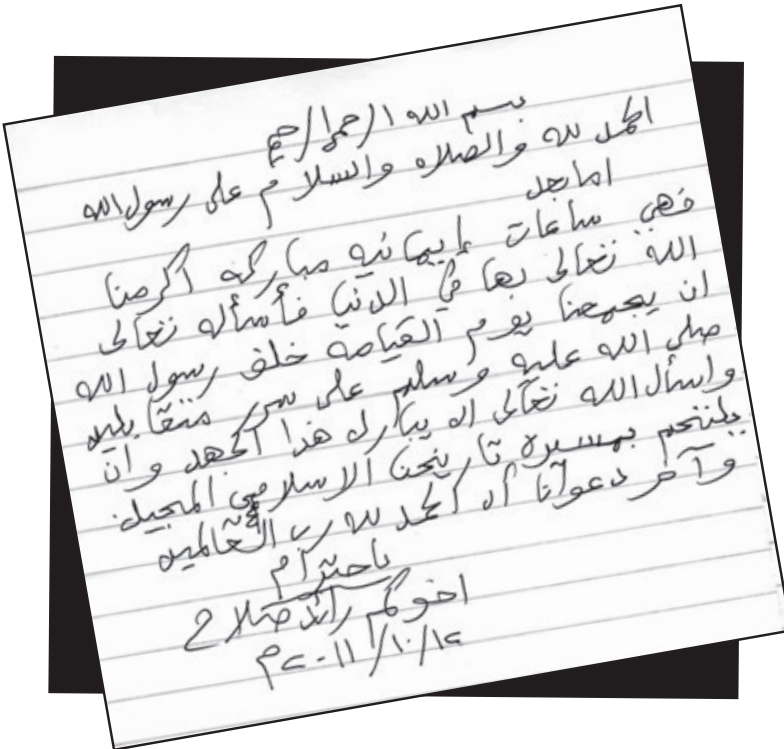 بسم الله الرحمن الرحيم
الحمد لله والصلاه والسلام على رسول الله
اما بعد
فهي ساعات إيمانيه مباركه اكرمنا
الله تعالى بها في الدنيا فأسأله تعالى
ان يجمعنا يوم القيامة خلف رسول الله
صلى الله عليه وسلم على سرر متقابلين
واسأل الله تعالى ان يبارك هذا الجهد وان
يلتحم بمسيرة تاريخنا الاسلامي المجيد.
وآخر دعوانا أن الحمد لله رب العالمين
باحترام
اخوكم رائد صلاح
١٢/١٠/٢٠١١م